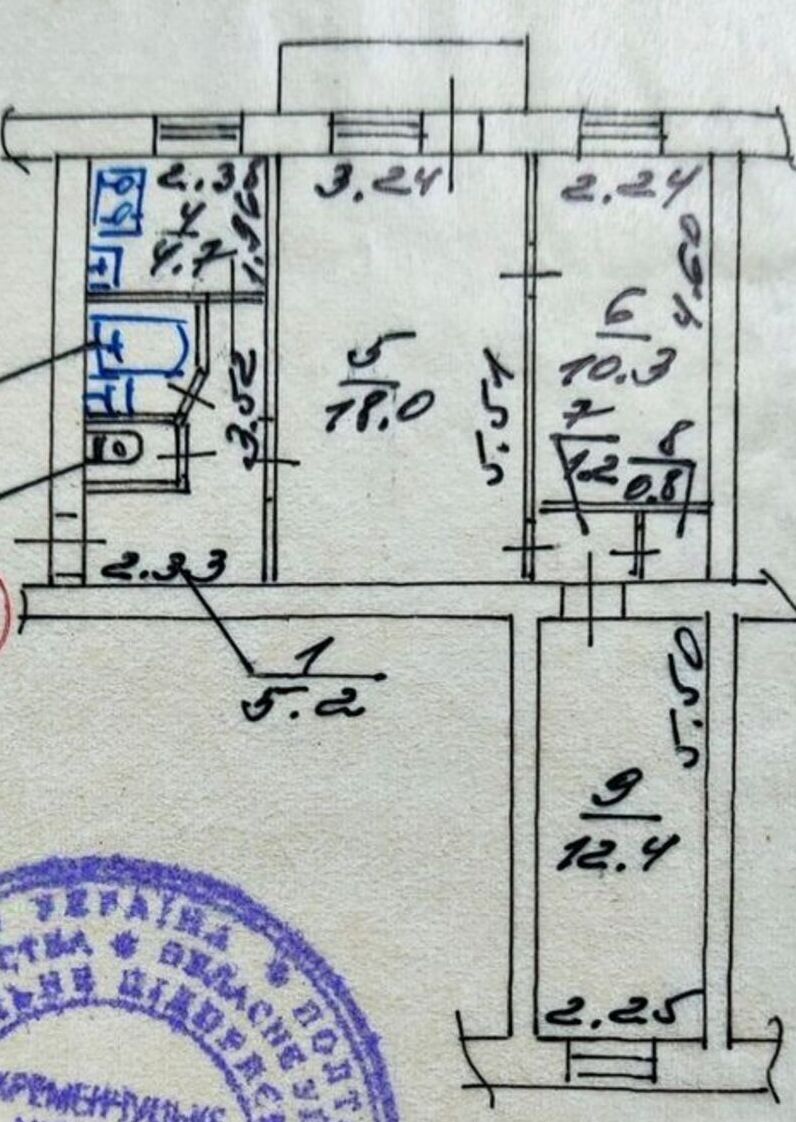 2.38
3.24
2.24
4
4.7
1.96
4.60
6
10.3
5
18.0
3.52
5.51
7
1.2
8
0.8
2.33
1
5.2
5.50
9
12.4
2.25
УКРАЇНА * ПОЛТ
СТВА * ОБЛАСНЕ УП
КРЕМЕНЧУЦЬКЕ